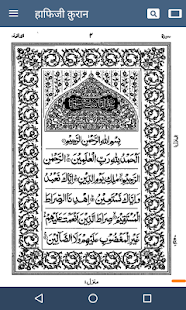 हाफिजी क़ुरान
٢
بِسْمِ اللهِ الرَّحْمٰنِ الرَّحِيْمِ
اَلْحَمْدُ لِلّٰهِ رَبِّ الْعٰلَمِيْنَ ۙ الرَّحْمٰنِ
الرَّحِيْمِ ۙ مٰلِكِ يَوْمِ الدِّيْنِ ۗ اِيَّاكَ نَعْبُدُ
وَاِيَّاكَ نَسْتَعِيْنُ ۗ اِهْدِنَا الصِّرَاطَ
الْمُسْتَقِيْمَ ۙ صِرَاطَ الَّذِيْنَ اَنْعَمْتَ عَلَيْهِمْ ۙ
غَيْرِ الْمَغْضُوْبِ عَلَيْهِمْ وَلَا الضَّآلِّيْنَ